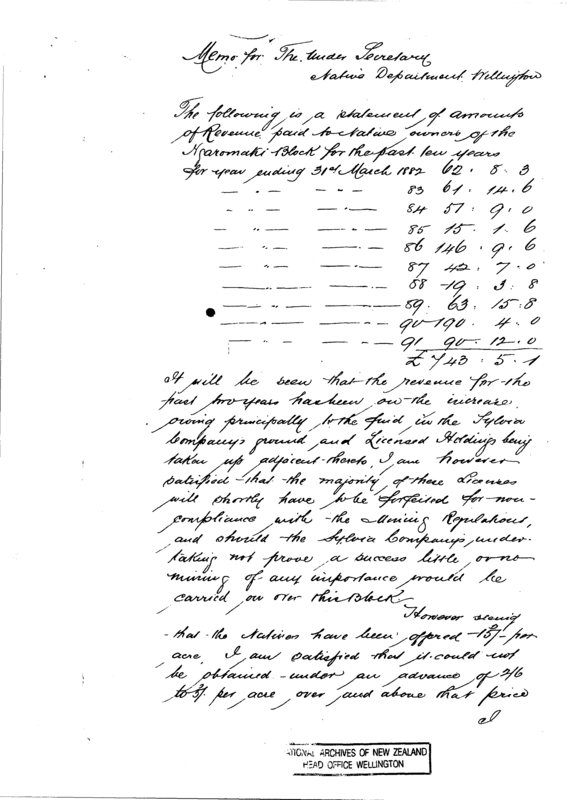 Memo for The Under Secretary
Native Department Wellington
The following is a statement of amounts
of Revenue paid to Native owners of the
Ngaromaki Block for the past ten years
for year ending 31st March 1882 62 . 8 . 3
— " — — " — 83 61 . 14 . 6
— " — ——— 84 57 . 9 . 0
— " — ——— 85 15 . 1 . 6
— " — ——— 86 146 . 9 . 6
— " — ——— 87 42 . 7 . 0
——— ——— 88 19 . 3 . 8
——— ——— 89 . 63 . 15 . 8
——— ——— 90 190 . 4 . 0
— " — ——— 91 90 . 12 . 0
£743 . 5 . 1
It will be seen that the revenue for the
past two years has been on the increase
owing principally to the find in the Sylvia
Companys ground and Licensed Holdings being
taken up adjacent thereto, I am however
satisfied that the majority of these Licenses
will shortly have to be forfeited for non-
compliance with the Mining Regulations,
and should the Sylvia Companys under-
taking not prove a success little or no
mining of any importance would be
carried on over this Block
However seeing
that the Natives have been offered 15/- per
acre, I am satisfied that it could not
be obtained under an advance of 2/6
to 3/- per acre over and above that price
I
NATIONAL ARCHIVES OF NEW ZEALAND
HEAD OFFICE WELLINGTON